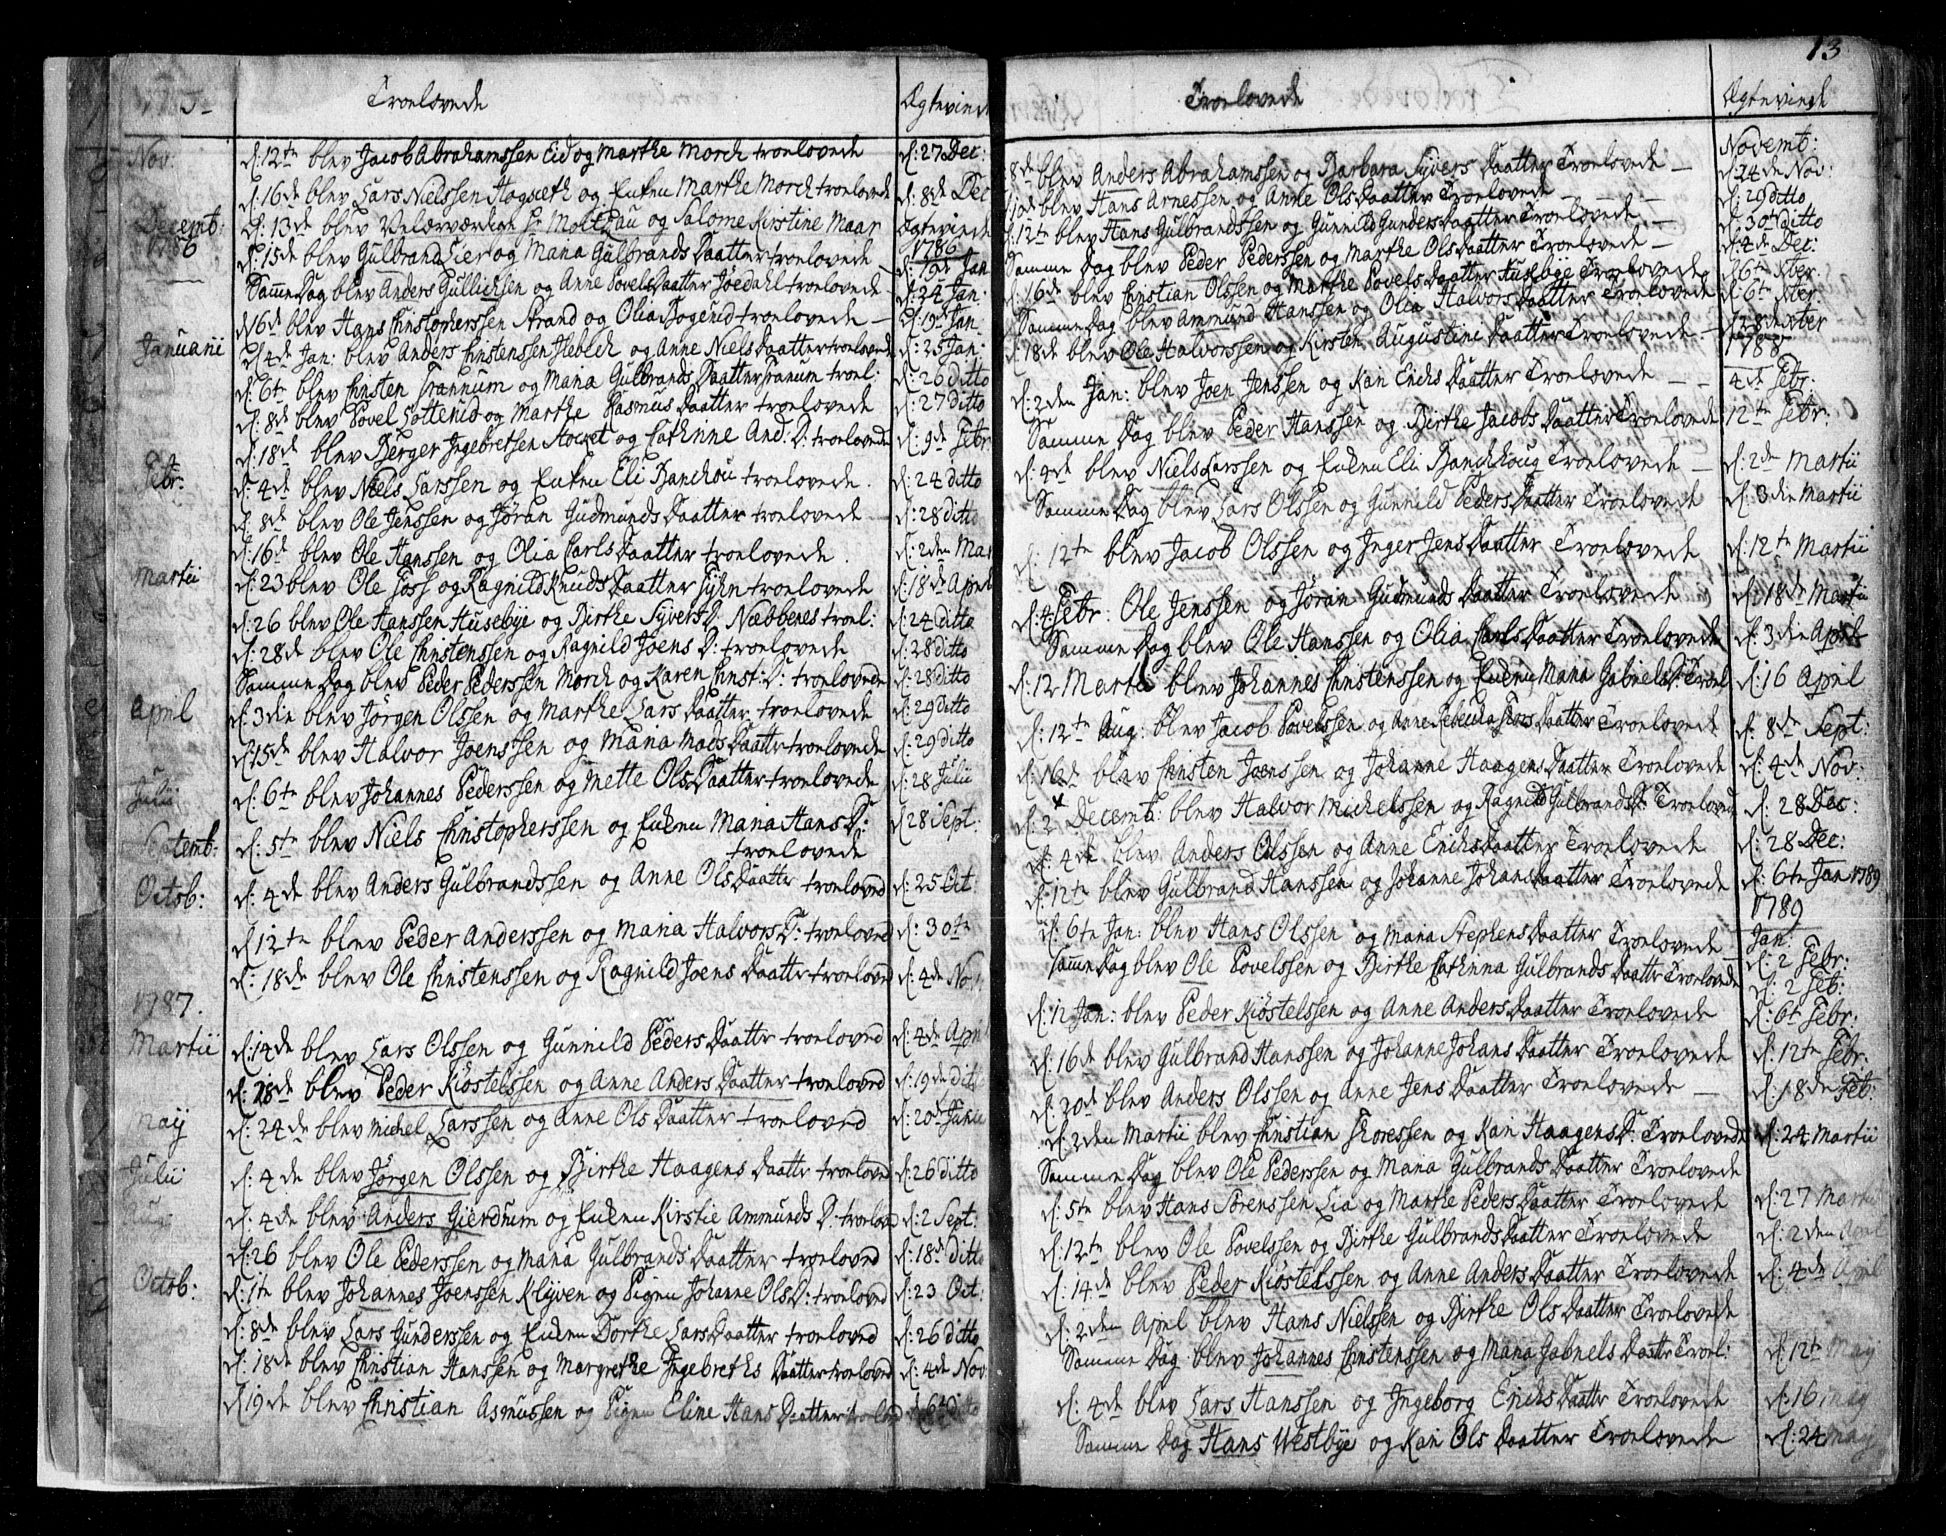 13
Troelovede Ægteviede
Nov: d: 12te blev Jacob Abrahamssen Eid og Marthe Morch troelovede d: 27 Dec:
d: 16de blev Lars Nielssen Hogseth og Enken Marthe Morch troelovede d: 8de Dec
Decemb: d: 13de blev Velærværdige Hr Moltzau og Salome Kirstine Maar Ægteviede
1786 d: 15de blev Gulbrand og Maria Gulbrands Daatter troelovede 1786 d: 19de Jan
Samme Dag blev Anders Gullichsen og Anne Povels Daatter troelovede d: 24 Jan:
d: 16de blev Hans Christopherssen Strand og Olia troelovede d: 19de Jan:
Januarii d: 4de Jan: blev Anders Christenssen og Anne Niels Daatter troelovede d: 25 Jan:
d: 6te blev Christen Trannum og Maria Gulbrands Daatter Tranum troel: d: 26 ditto
d: 8de blev Povel og Marthe Rasmus Daatter troelovede d: 27 ditto
d: 18de blev Berger Ingebretsen og Cathrine And: D: troelovede d: 9de Febr
Febr: d: 4de blev Niels Larssen og Enken Eli troelovede d: 24 ditto
d: 8de blev Ole Jenssen og Jøran Gudmunds Daatter troelovede d: 28 ditto
d: 16de blev Ole Hanssen og Olia Carls Daatter troelovede d: 2den Mar
Martii d: 23 blev Ole Foss og Ragnild Knuds Daatter troelovede d: 18de April
d: 26 blev Ole Hanssen Husebye og Birthe Syvers D: Næbbenes troel: d: 24 ditto
d: 28de blev Ole Christenssen og Ragnild Joens D: troelovede d: 28 ditto
Samme Dag blev Peder Pederssen Morch og Karen Christ: D: troelovede d: 28 ditto
April d: 3die blev Jørgen Olssen og Marthe Lars Daatter troelovede d: 29 ditto
d: 15de blev Halvor Joenssen og Maria Mads Daatter troelovede d: 29 ditto
Julii d: 6te blev Johannes Pederssen og Mette Ols Daatter troelovede d: 28 Julii
Septemb: d: 5te blev Niels Christopherssen og Enken Maria Hans D: d: 28 Sept:
troelovede
Octob: d: 4de blev Anders Gulbrandssen og Anne Ols Daatter troeloved d: 25 Oct
d: 12te blev Peder Anderssen og Maria Halvors D: troeloved d: 30te
d: 18de blev Ole Christenssen og Ragnild Joens Daatter troeloved d: 4de Nov
1787.
Martii d: 14de blev Lars Olssen og Gunnild Peders Daatter troeloved d: 4de April
d: 28de blev Peder Kiöstelssen og Anne Anders Daatter troeloved d: 19de ditto
May d: 24de blev Michel Larssen og Anne Ols Daatter troeloved d: 20de Junii
Julii d: 4de blev Jørgen Olssen og Birthe Haagens Daatter troeloved d: 26 ditto
Aug: d: 4de blev Anders Gierdrum og Enken Kirstie Ammunds D: troeloved d: 2 Sept:
d: 26 blev Ole Pederssen og Maria Gulbrands Daatter troeloved d: 18de ditto
Octob: d: 1te blev Johannes Joenssen Klyven og Pigen Johanne Ols D: troeloved d: 23 Oct:
d: 8de blev Lars Gunderssen og Enken Dorthe Lars Daatter troeloved d: 26 ditto
d: 18de blev Christian Hanssen og Margrethe Ingebreths Daatter troeloved d: 4de Nov
d: 19de blev Christian Asmussen og Pigen Eline Hans Daatter troeloved d: 6te ditto
Troelovede Ægteviede
Novemb:
8de blev Anders Abrahamssen og Barbara Syvers Daatter Troelovede d: 24de Nov:
10de blev Hans Arnessen og Anne Ols Daatter Troelovede d: 29 ditto
d: 12te blev Hans Gulbrandssen og Gunnild Gunders Daatter Troelovede d: 30te ditto
Samme Dag blev Peder Pederssen og Marthe Ols Daatter Troelovede d: 4de Dec:
d: 16de blev Christian Olssen og Marthe Povels Daatter Husebye Troelovede d: 6te Xber:
Samme Dag blev Ammund Hanssen og Olia Halvors Daatter Troelovede d: 6te Xber:
d: 18de blev Ole Halvorssen og Kirsten Augustini Daatter Troelovede d: 28de Xber
1788
d: 2den Jan: blev Joen Jenssen og Kari Erichs Daatter Troelovede 4de Febr:
Samme Dag blev Peder Hanssen og Birthe Jacobs Daatter Troelovede 12te Febr:
d: 4de blev Niels Larssen og Enken Eli Troelovede d: 2den Martii
Samme Dag blev Lars Olssen og Gunnild Peders Daatter Troelovede d: 3die Martii
d: 12te blev Jacob Olssen og Inger Jens Daatter Troelovede d: 12te Martii
d: 4de Febr: Ole Jenssen og Jöran Gudmunds Daatter Troelovede d: 18de Martii
Samme Dag blev Ole Hanssen og Olia Carls Daatter Troelovede d: 3die April
d: 12 Martii blev Johannes Christenssen og Enken Maria Gabriels D: Troel d: 16 April
d: 12te Aug: blev Jacob Povelssen og Anne Rebecka Daatter Troelovede d: 8de Sept:
d: 16de blev Christen Joenssen og Johanne Haagens Daatter Troelovede d: 4de Nov:
d: 2 Decemb: blev Halvor Michelssen og Ragnild Gulbrands D: Troeloved d: 28 Dec:
d: 4de blev Anders Olssen og Anne Erichs Daatter Troelovede d: 28 Dec:
d: 12te blev Gulbrand Hanssen og Johanne Johans Daatter Troelovede d: 6te Jan 1789
1789
d: 6te Jan: blev Hans Olssen og Maria Stephens Daatter Troelovede Jan:
Samme Dag blev Ole Povelssen og Birthe Cathrina Gulbrands Daatter Troelovede d: 2 Febr:
d: 2 Feb:
d: 12 Jan: blev Peder Kiöstelssen og Anne Anders Daatter Troelovede d: 6te Febr:
d: 16de blev Gulbrand Hanssen og Johanne Johans Daatter Troelovede d: 12te Febr:
d: 20de blev Anders Olssen og Anne Jens Daatter Troelovede d: 18de Feb:
d: 2den Martii blev Christian Thoressen og Kari Haagens D: Troelovede d: 24 Martii
Samme Dag blev Ole Pederssen og Maria Gulbrands Daatter Troelovede
d: 5te blev Hans Sörenssen Lia og Marthe Peders Daatter Troelovede d: 27 Martii
d: 12te blev Ole Povelssen og Birthe Gulbrands Daatter Troelovede d: 2den April
d: 14de blev Peder Kiöstelssen og Anne Anders Daatter Troelovede d: 4de April
d: 2den April blev Hans Nielssen og Birthe Ols Daatter Troelovede
Samme Dag blev Johannes Christenssen og Maria Gabriels Daatter Troel: d: 12te May
d: 4de blev Lars Hanssen og Ingeborg Erichs Daatter Troelovede d: 16 May
Samme Dag Hans Westbye og Kari Ols Daatter Troelovede d: 24 May